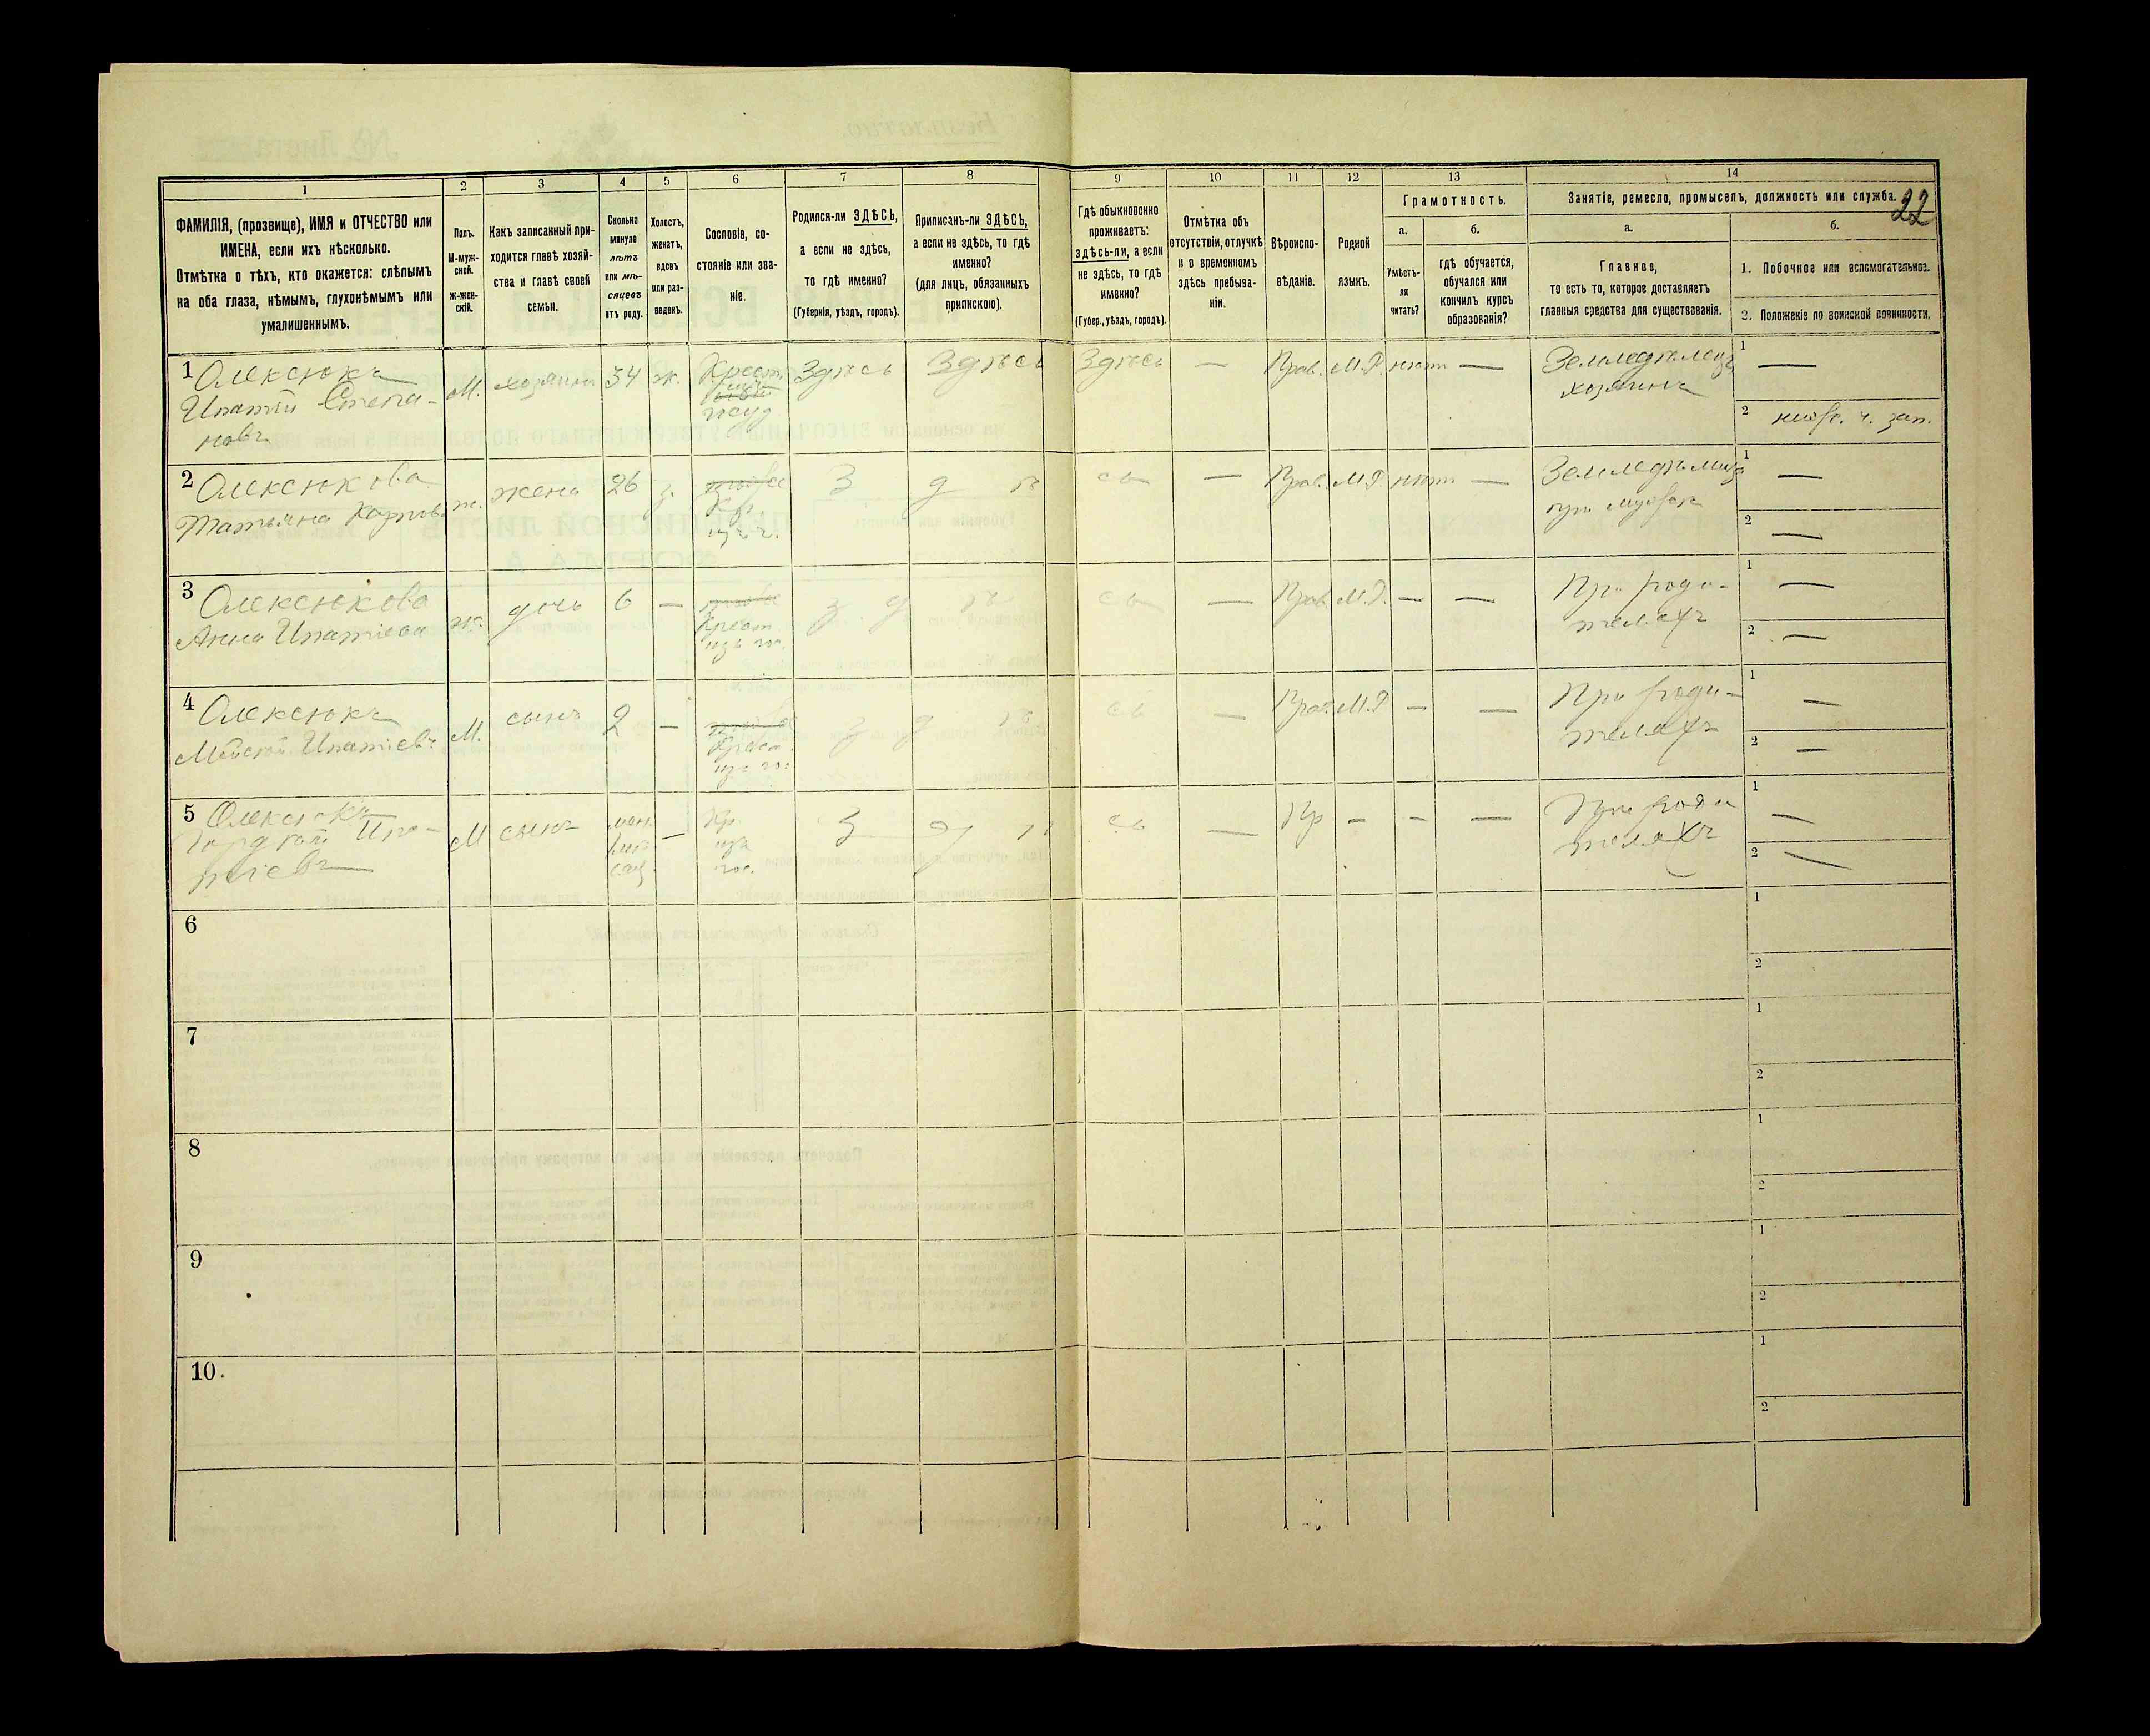 22
1
ФАМИЛІЯ, (прозвище), ИМЯ и ОТЧЕСТВО или
ИМЕНА, если ихъ нѣсколько.
Отмѣтка о тѣхъ, кто окажется: слѣпымъ
на оба глаза, нѣмымъ, глухонѣмымъ или
умалишеннымъ.
2
Полъ.
М-муж-
ской.
Ж-жен-
скій.
3
Какъ записанный при-
ходится главѣ хозяй-
ства и главѣ своей
семьи.
4
Сколько
минуло
лѣтъ
или мѣ-
сяцевъ
отъ роду.
5
Холостъ,
женатъ,
вдовъ
или раз-
веденъ.
6
Сословіе, со-
стояніе или зва-
ніе.
7
Родился-ли ЗДѢСЬ,
а если не здѣсь,
то гдѣ именно?
(Губернія, уѣздъ, городъ).
8
Приписанъ-ли ЗДѢСЬ,
а если не здѣсь, то гдѣ
именно?
(для лицъ, обязанныхъ
припискою).
9
Гдѣ обыкновенно
проживаетъ:
здѣсь-ли, а если
не здѣсь, то гдѣ
именно?
(Губер., уѣздъ, городъ).
10
Отмѣтка объ
отсутствіи, отлучкѣ
и о временномъ
здѣсь пребыва-
ніи.
11
Вѣроиспо-
вѣданіе.
12
Родной
языкъ.
13
Грамотность.
а.
Умѣетъ-
ли
читать?
б.
гдѣ обучается,
обучался или
кончилъ курсъ
образованія?
14
Занятіе, ремесло, промыселъ, должность или служба.
а.
Главное,
то есть то, которое доставляетъ
главныя средства для существованія.
б.
1. Побочное или вспомогательное.
2. Положеніе по воинской повинности.
1 Олексюкъ
Ипатій Степа-
новъ
М. хозяинъ 34 ж. Крест.
госуд
Здѣсь Здѣсь Здѣсь — Прав. М.Р. нѣтъ —
Земледѣлецъ
хозяинъ
1 —
2 зап.
2 Олексюкова
Татьяна Карпов.
ж. жена 26 з. Кр.
З д ѣ сь — Прав. М.Р. нѣтъ —
1 —
2 —
3 Олексюкова
Анна Ипатіева
ж. дочь 6 — Крест
изъ гос.
З д ѣ сь — Прав. М.Р. — —
При роди-
теляхъ
1 —
2 —
4 Олексюкъ
Мойсей Ипатіевъ
М. сынъ 2 — Крест
изъ гос
З д ѣ сь — Прав. М.Р — —
При роди-
теляхъ
1 —
2 —
5 Олексюкъ
Гордѣй Ипа-
тіевъ
М сынъ — Кр.
изъ
гос.
З д ѣ сь — Пр — — —
При роди
теляхъ
1 —
2 —
6
1
2
7
1
2
8
1
2
9
1
2
10.
1
2